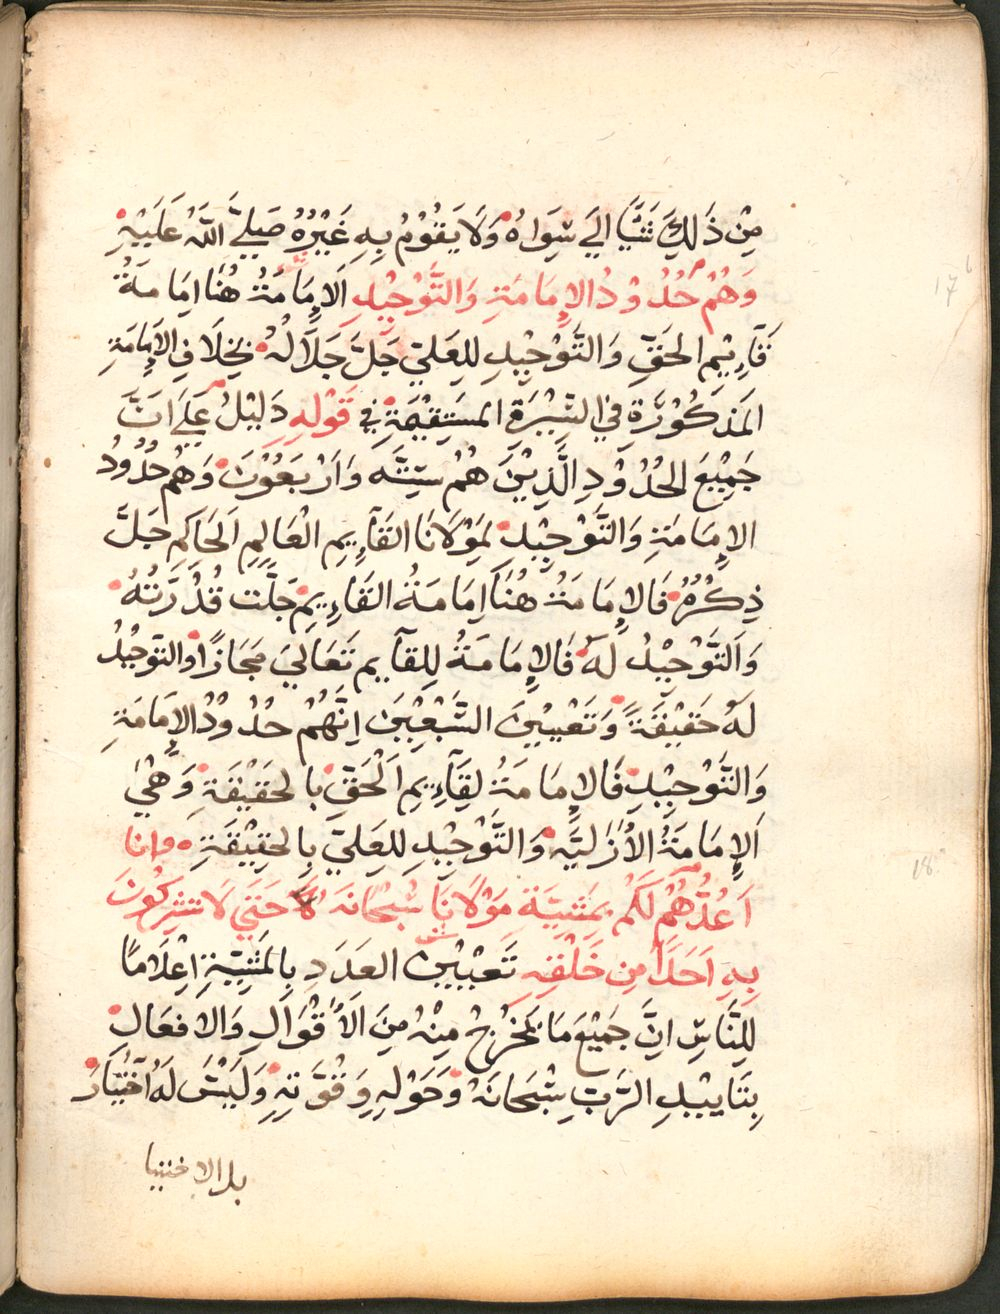 مِنْ ذَلِكَ شَيْئًا اِلَي سِوَاهُ وَلَا يَقُوْمُ بِهِ غَيْرُهُ صَلَّيَ اللّٰهُ عَلَيْهِ
وَهُمْ حُدُوْدُ الاِمَامَةِ وَالتَّوْحِيْدِ اَلاِمَامَةُ هُنَا اِمَامَةُ
قَآءِيْمِ الحَقِّ وَالتَّوْحِيْدِ لِلعَلِيِّ جَلَّ جَلَالُهُ بِخِلَافِ الاِمَامَةِ
المَذكُوْرَةِ فِي السِّيْرَةِ المُستَقِيْمَةِ فِي قَوْلِهِ دَلِيْلُ عَلَي اَنَّ
جَمِيْعَ الحُدُوْدِ الَّذِيْنَ هُمْ سِتَّه وَاَرْبَعُوْنَ وَهُمْ حُدُوْدُ
الاِمَامَةِ وَالتَّوْحِيْدِ لِمَوْلَانَا القَآءِيمِ العَالِمِ الحَاكِمِ جَلَّ
ذِكْرُهُ فَالاِمَامَةُ هُنَا اِمَامَةُ القَاءِيمِ جَلَّت قُدْرَتُهُ
وَالتَّوْحِيْدُ لَهُ فَالاِمَامَةُ لِلقَآيِم تَعَالَي مَجَازًا وَالتَّوْحِيْدُ
لَهُ حَقِيْقَةً وَتَعْيِيْنَ السَّبْعِيْنَ اِنَّهُمْ حُدُوْدُ الاِمَامَةِ
وَالتَّوْحِيْدِ فَالاِمَامَةُ لِقَآءِيمِ الْحَقِّ بِالحَقِيْقَةِ وَهِيَ
اَلاِمَامَةُ الاَزَلِيَّه وَالتَّوْحِيْدِ لِلعَلِيِّ بِالحَقِيْقَةِ وانا
اَعُدُّهُمْ لَكُمْ بِمَشِيَّةِ مَوْلَانَا سُبْحَانَهُ حَتَّي لَا تُشْرِكُوْنَ
بِهِ اَحَدًا مِن خَلْقِهِ تَعْيِيْنَ العَدَدِ بِالمَشِيَّةِ اِعْلَامًا
لِلنَّاسِ اِنَّ جَمِيْعَ مَا يَخْرُجُ مِنْهُ مِنَ الاَقْوَالِ وَالافعَالِ
بِتَايِيْدِ الرَّبِّ سُبْحَانَهُ وَحَوْلِهِ وَقُوَّتِهِ وَلَيْسَ لَهُ اَخْتِيَارَ
بل الاختيا
17
18